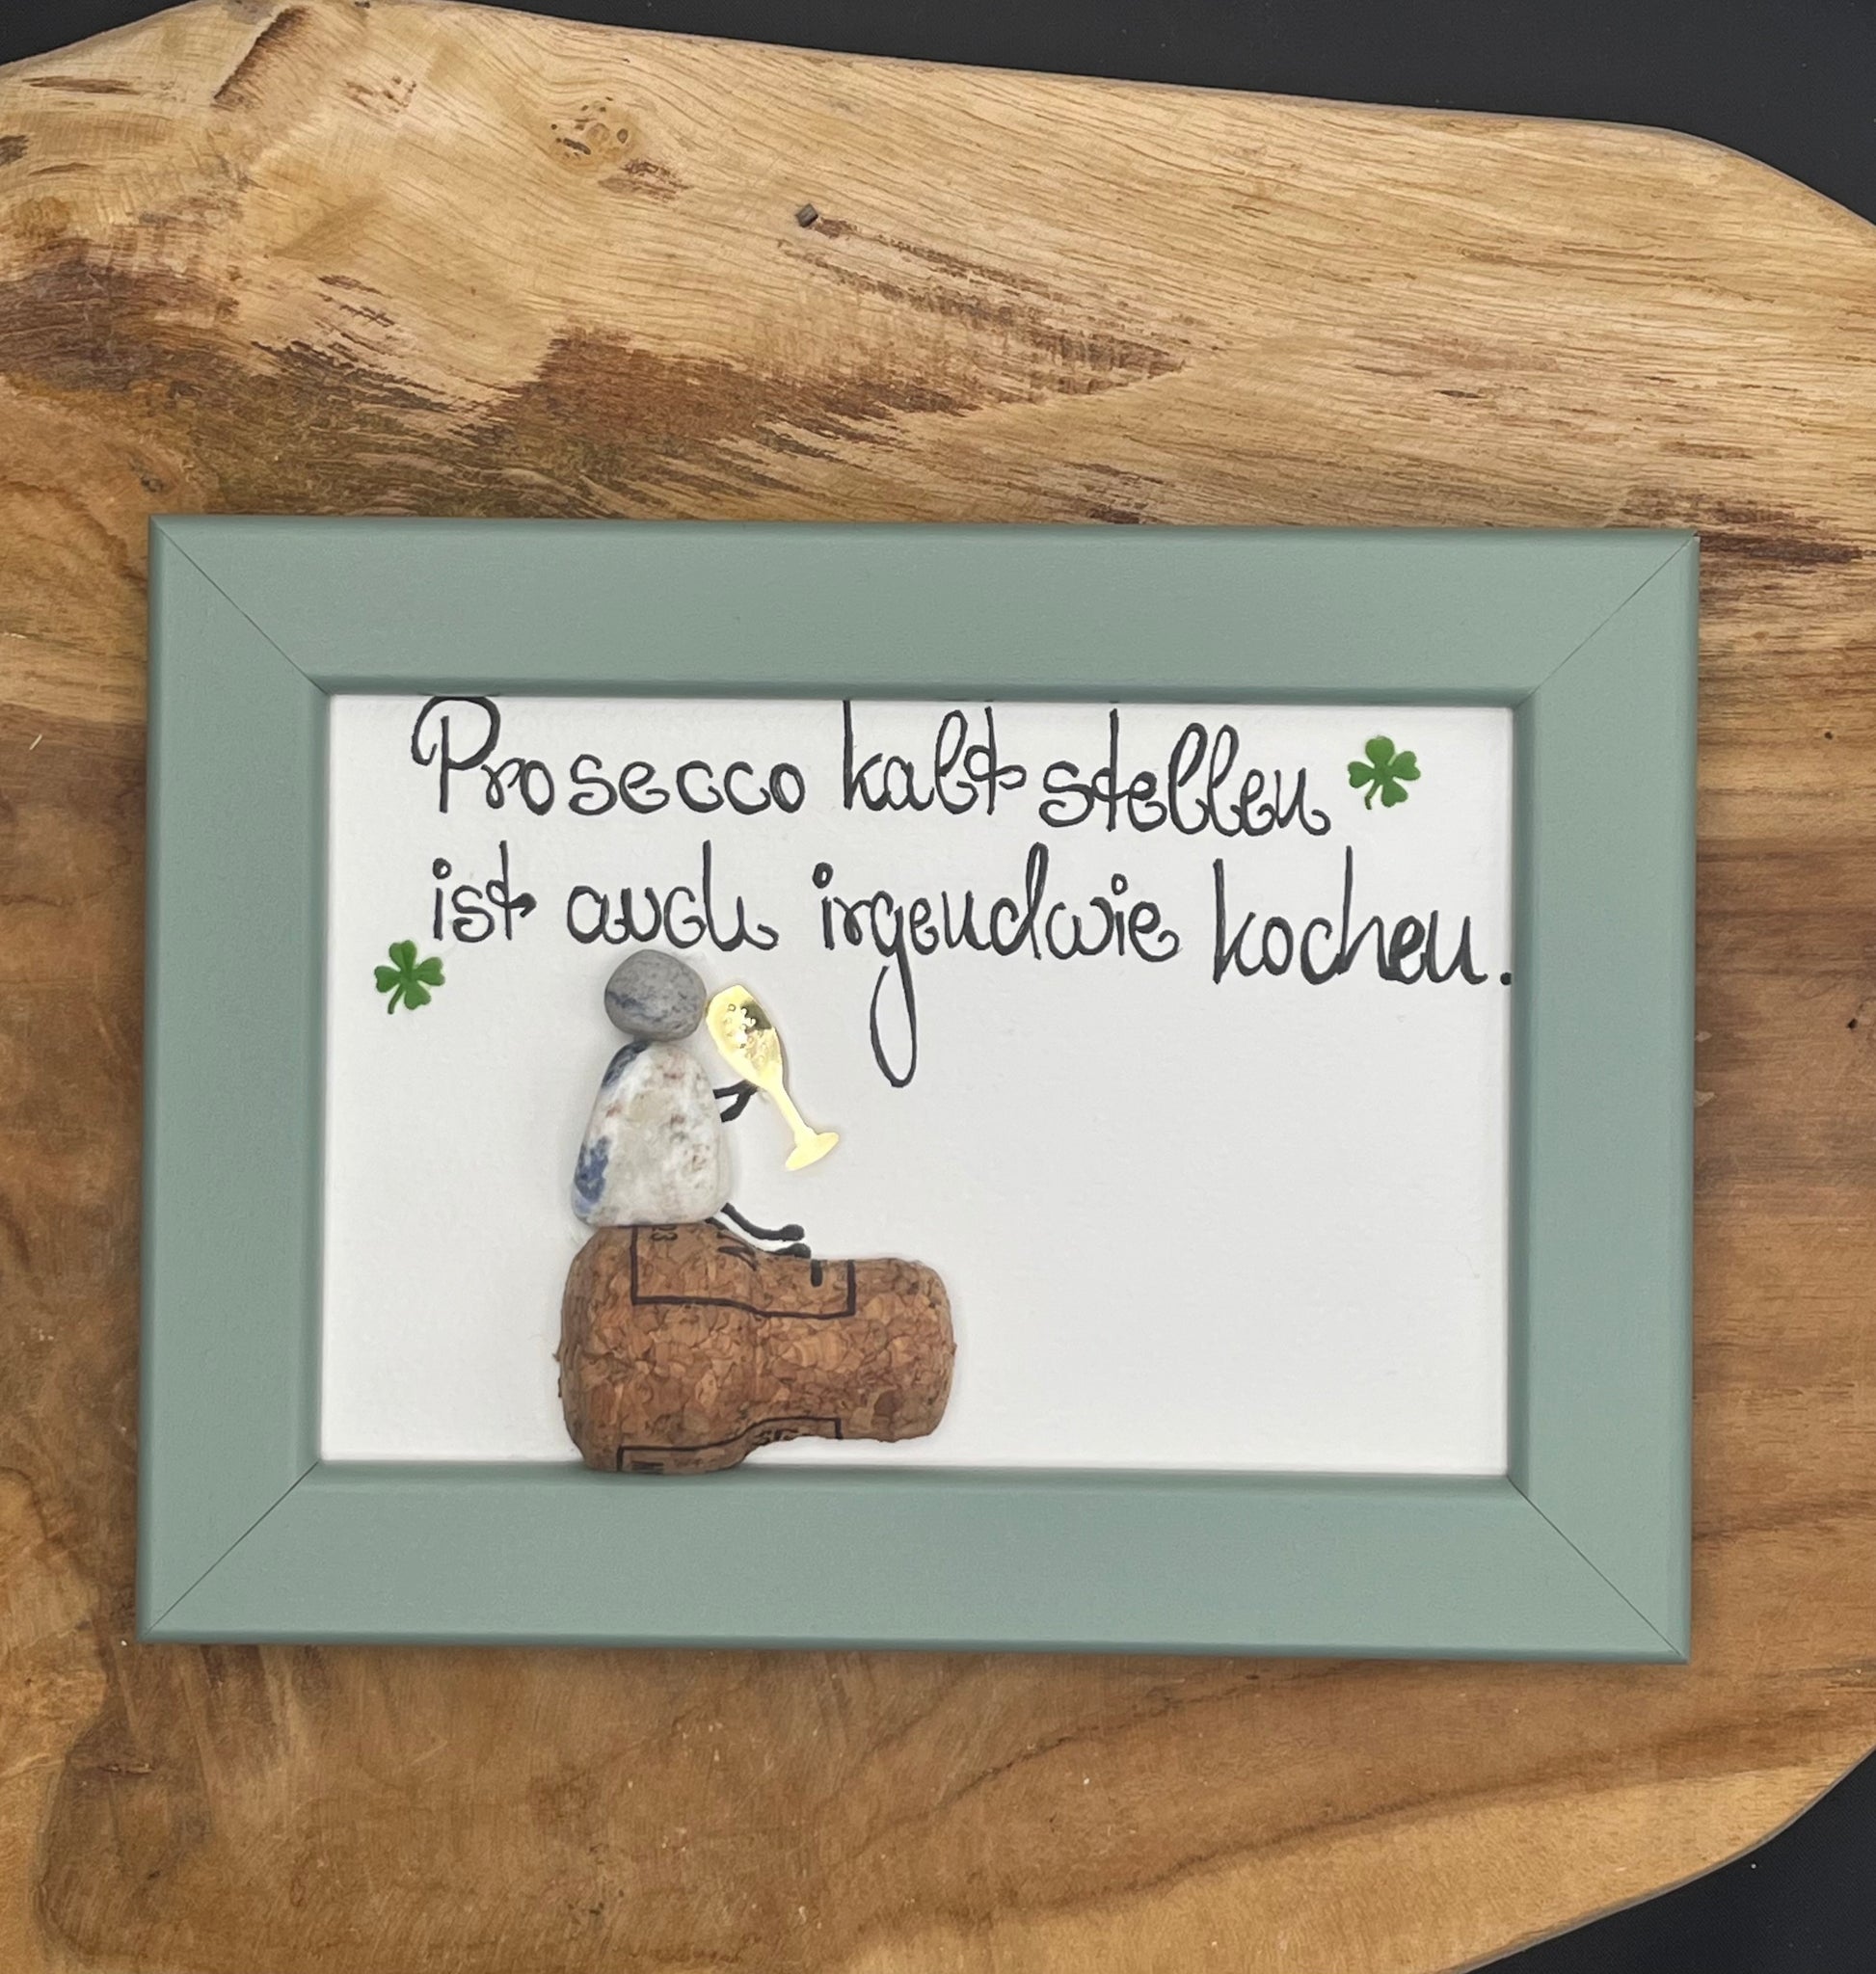 Prosecco kalt stellen
ist auch irgendwie kochen.